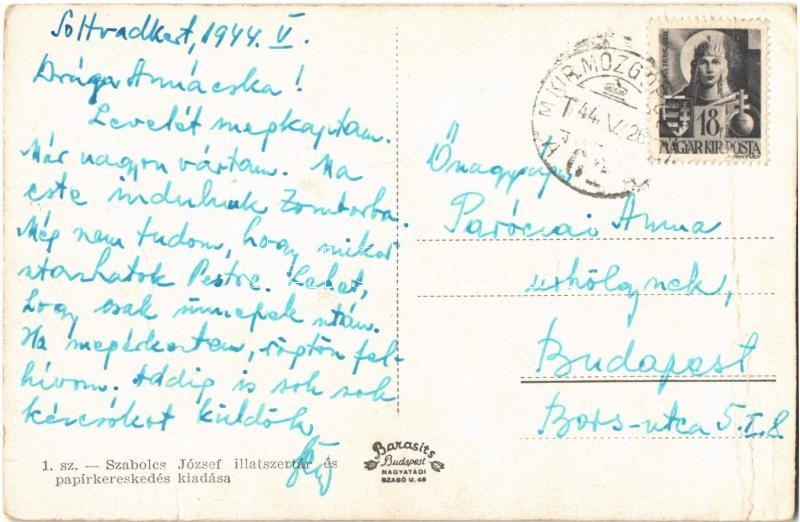 Soltvadkert, 1944. V.
Drága Annácska!
Levelét megkaptam.
Már nagyon vártam. Ma
este indulunk Zomborba.
Még nem tudom, hogy mikor
utazhatok Pestre. Lehet,
hogy csak ünnepek után.
Ha megérkeztem, rögtön fel-
hívom. Addig is sok sok
kézcsókot küldök
1. sz. — Szabolcs József illatszertár és
papírkereskedés kiadása
Barasits
Budapest
NAGYATÁDI
SZABÓ U. 48
M. KIR. MOZGÓ
44 V 26
18
MAGYAR KIR. POSTA
Őnagysága
Paróczai Anna
urhölgynek,
Budapest
Bors-utca 5. I. 8.